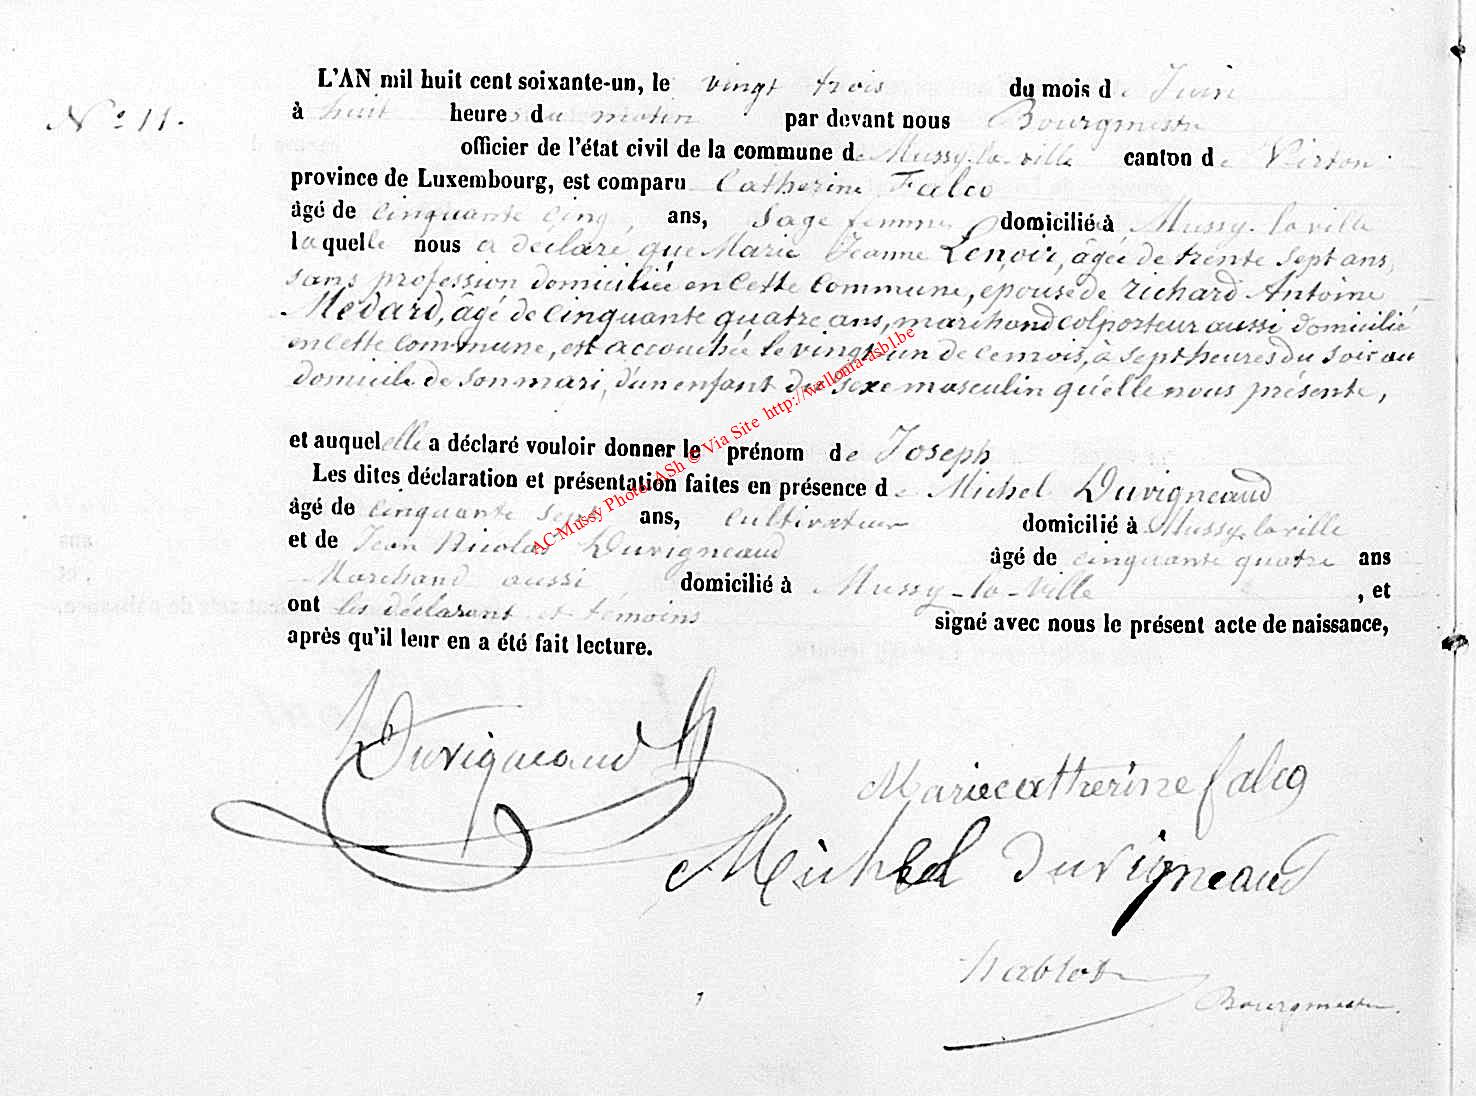 L'AN mil huit cent soixante-un, le vingt trois du mois de Juin
N° 11. à huit heures du matin par devant nous Bourgmestre
officier de l'état civil de la commune de Mussy-la-ville canton de Virton
province de Luxembourg, est comparu Catherine Falco
âgé de cinquante cinq ans, sage femme domicilié à Mussy-la-ville
laquelle nous a déclaré que Marie Jeanne Lenoir, âgée de trente sept ans,
sans profession domiciliée en cette commune, épouse de Richard Antoine
Médard, âgé de cinquante quatre ans, marchand colporteur aussi domicilié
en cette commune, est accouchée le vingt un de ce mois, à sept heures du soir au
domicile de son mari, d'un enfant du sexe masculin qu'elle nous présente,
et auquel elle a déclaré vouloir donner le prénom de Joseph
Les dites déclaration et présentation faites en présence de Michel Duvigneaud
âgé de cinquante sept ans, cultivateur domicilié à Mussy-la-ville
et de Jean Nicolas Duvigneaud âgé de cinquante quatre ans
Marchand aussi domicilié à Mussy-la-Ville, et
ont les déclarant et témoins signé avec nous le présent acte de naissance,
après qu'il leur en a été fait lecture.
AC-Mussy Photo. ASh © Via Site http://wallonia-asbl.be
Duvigneaud
Marie catherine falco
Michel Duvigneaud
Bourgmestre